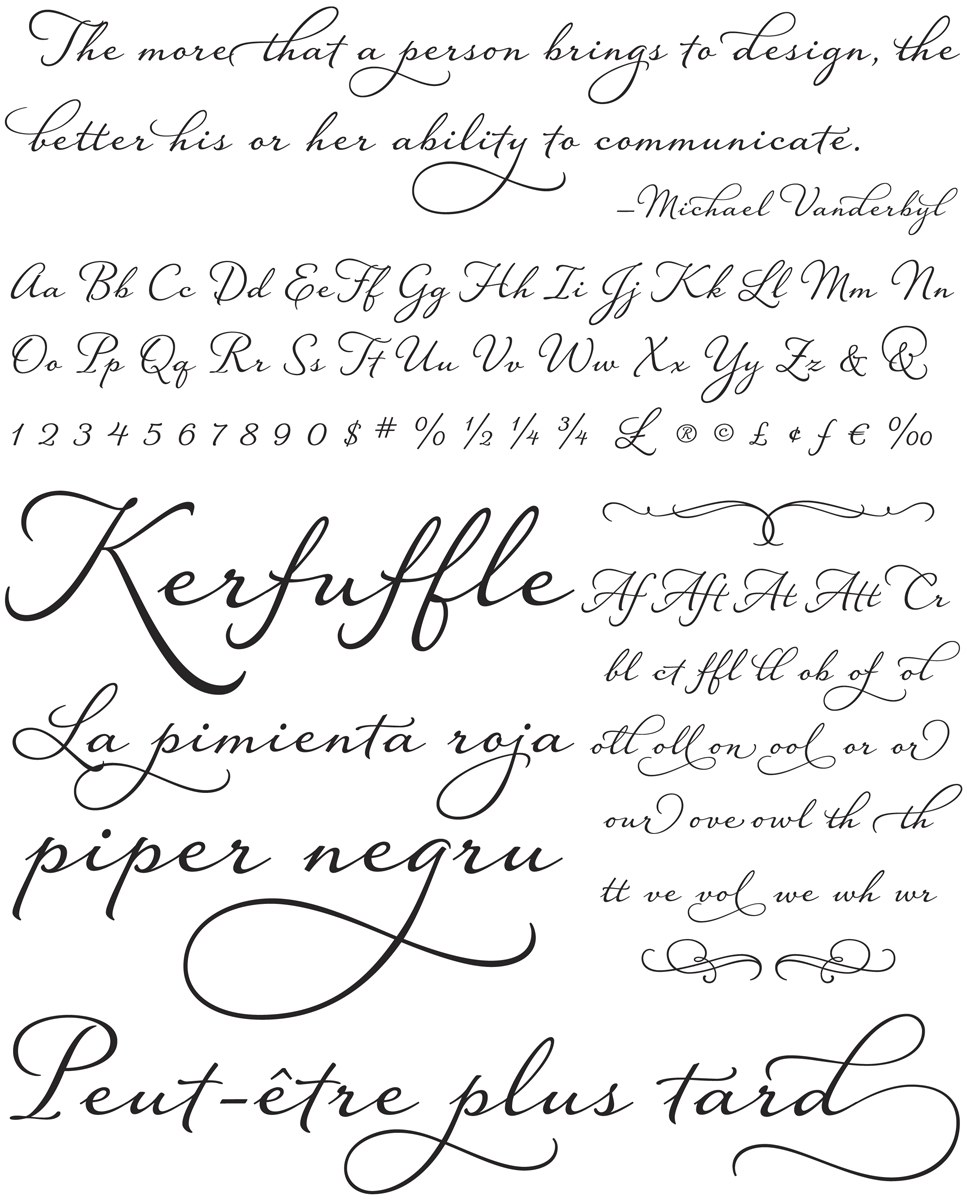 The more that a person brings to design, the
better his or her ability to communicate.
–Michael Vanderbyl
Aa Bb Cc Dd Ee Ff Gg Hh Ii Jj Kk Ll Mm Nn
Oo Pp Qq Rr Ss Tt Uu Vv Ww Xx Yy Zz & &
1 2 3 4 5 6 7 8 9 0 $ # % ½ ¼ ¾ £ ® © £ ¢ ƒ € ‰
Kerfuffle
Af Aft At Att Cr
bl ct ffl ll ob of ol
La pimienta roja
oll oll on ool or or
piper negru
our ove owl th th
tt ve vol we wh wr
Peut-être plus tard